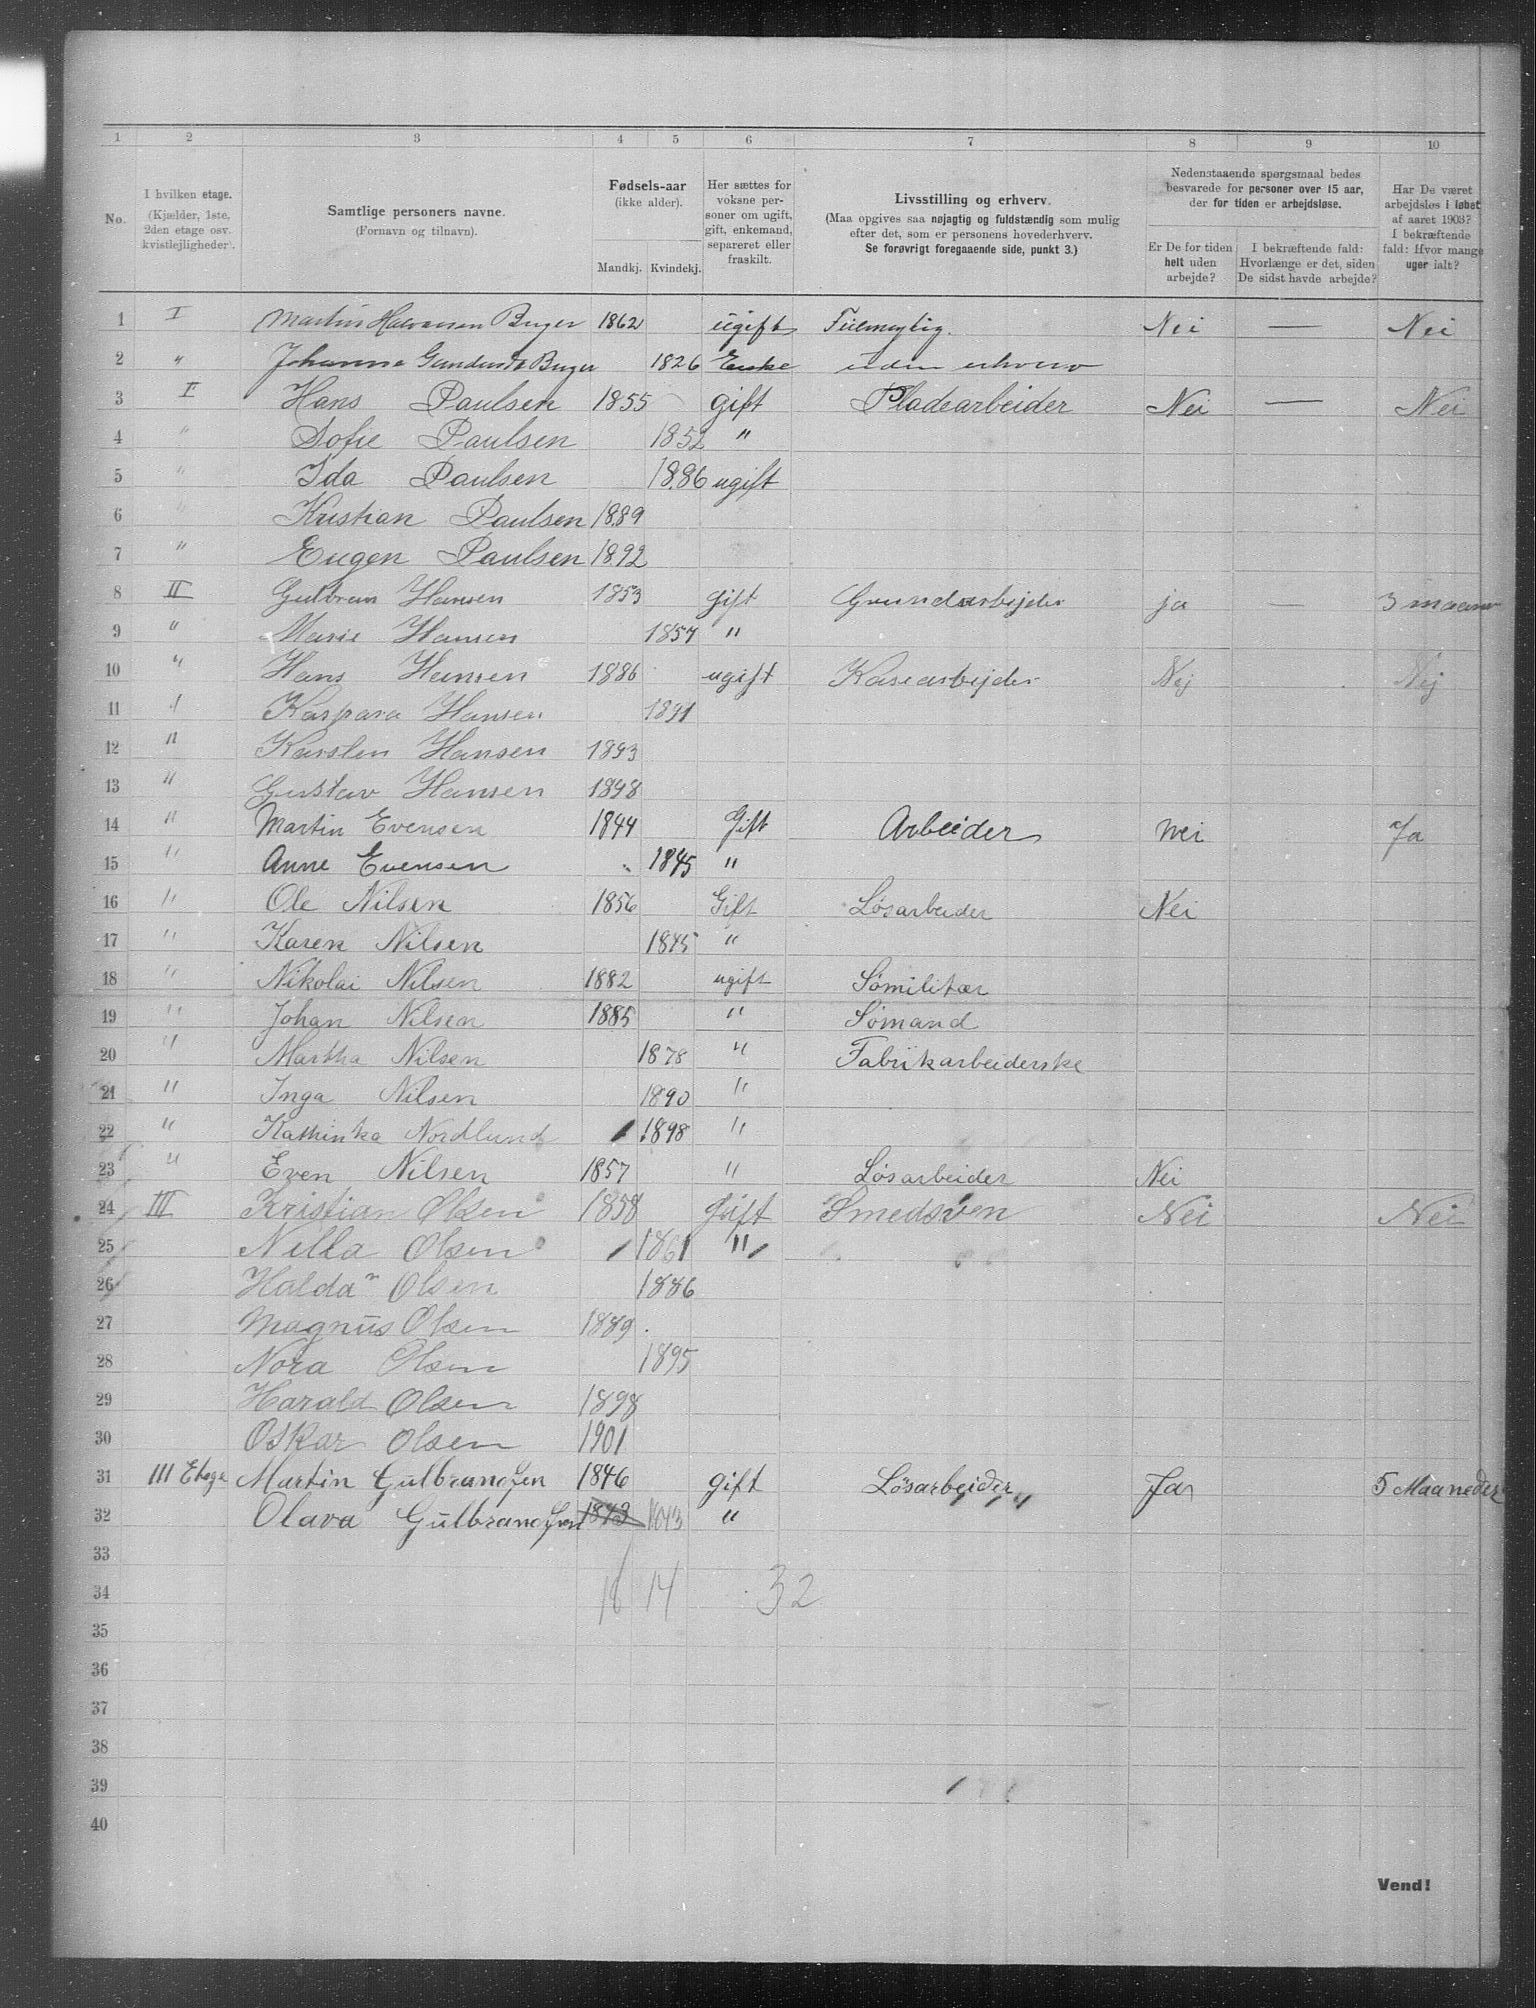 1 2 3 4 5 6 7 8 9 10
No.
I hvilken etage.
(Kjælder, 1ste,
2den etage osv.
kvistlejligheder).
Samtlige personers navne.
(Fornavn og tilnavn).
Fødsels-aar
(ikke alder).
Mandkj. Kvindekj.
Her sættes for
voksne per-
soner om ugift,
gift, enkemand,
separeret eller
fraskilt.
Livsstilling og erhverv.
(Maa opgives saa nøjagtig og fuldstændig som mulig
efter det, som er personens hovederhverv.
Se forøvrigt foregaaende side, punkt 3.)
Nedenstaaende spørgsmaal bedes
besvarede for personer over 15 aar,
der for tiden er arbejdsløse.
Er De for tiden
helt uden
arbejde?
I bekræftende fald:
Hvorlænge er det, siden
De sidst havde arbejde?
Har De været
arbejdsløs i løbet
af aaret 1903?
I bekræftende
fald: Hvor mange
uger ialt?
1 I Martin Halvorsen 1862 ugift Nei — Nei
2 " Johanne 1826 Enke uden erhverv
3 II Hans Paulsen 1855 gift Pladearbeider Nei — Nei
4 " Sofie Paulsen 1852 "
5 " Ida Paulsen 1886 ugift
6 " Kristian Paulsen 1889
7 " Eugen Paulsen 1892
8 II Gulbran Hansen 1853 gift Grundarbejder ja — 3
9 " Marie Hansen 1857 "
10 " Hans Hansen 1886 ugift Nej Nej
11 " Kaspara Hansen 1891
12 " Karsten Hansen 1893
13 " Gustav Hansen 1898
14 " Martin Evensen 1844 Gift Arbeider Nei Ja
15 " Anne Evensen 1845 "
16 " Ole Nilsen 1856 Gift Løsarbeider Nei
17 " Karen Nilsen 1845 "
18 " Nikolai Nilsen 1882 ugift Sømilitær
19 " Johan Nilsen 1885 " Sømand
20 " Martha Nilsen 1878 " Fabrikarbeiderske
21 " Inga Nilsen 1890 "
22 " Kathinka Nordlund 1898 "
23 " Even Nilsen 1857 " Løsarbeider Nei
24 III Kristian Olsen 1858 Gift Smedsven Nei Nei
25 Nella Olsen 1861 "
26 Halda Olsen 1886
27 Magnus Olsen 1889
28 Nora Olsen 1895
29 Harald Olsen 1898
30 Oskar Olsen 1901
31 III Etage Martin Gulbrandsen 1846 gift Løsarbeider Ja 5 Maaneder
32 Olava Gulbrandsen 1843 1843 "
33
34 14 32
35
36
37
38
39
40
Vend!